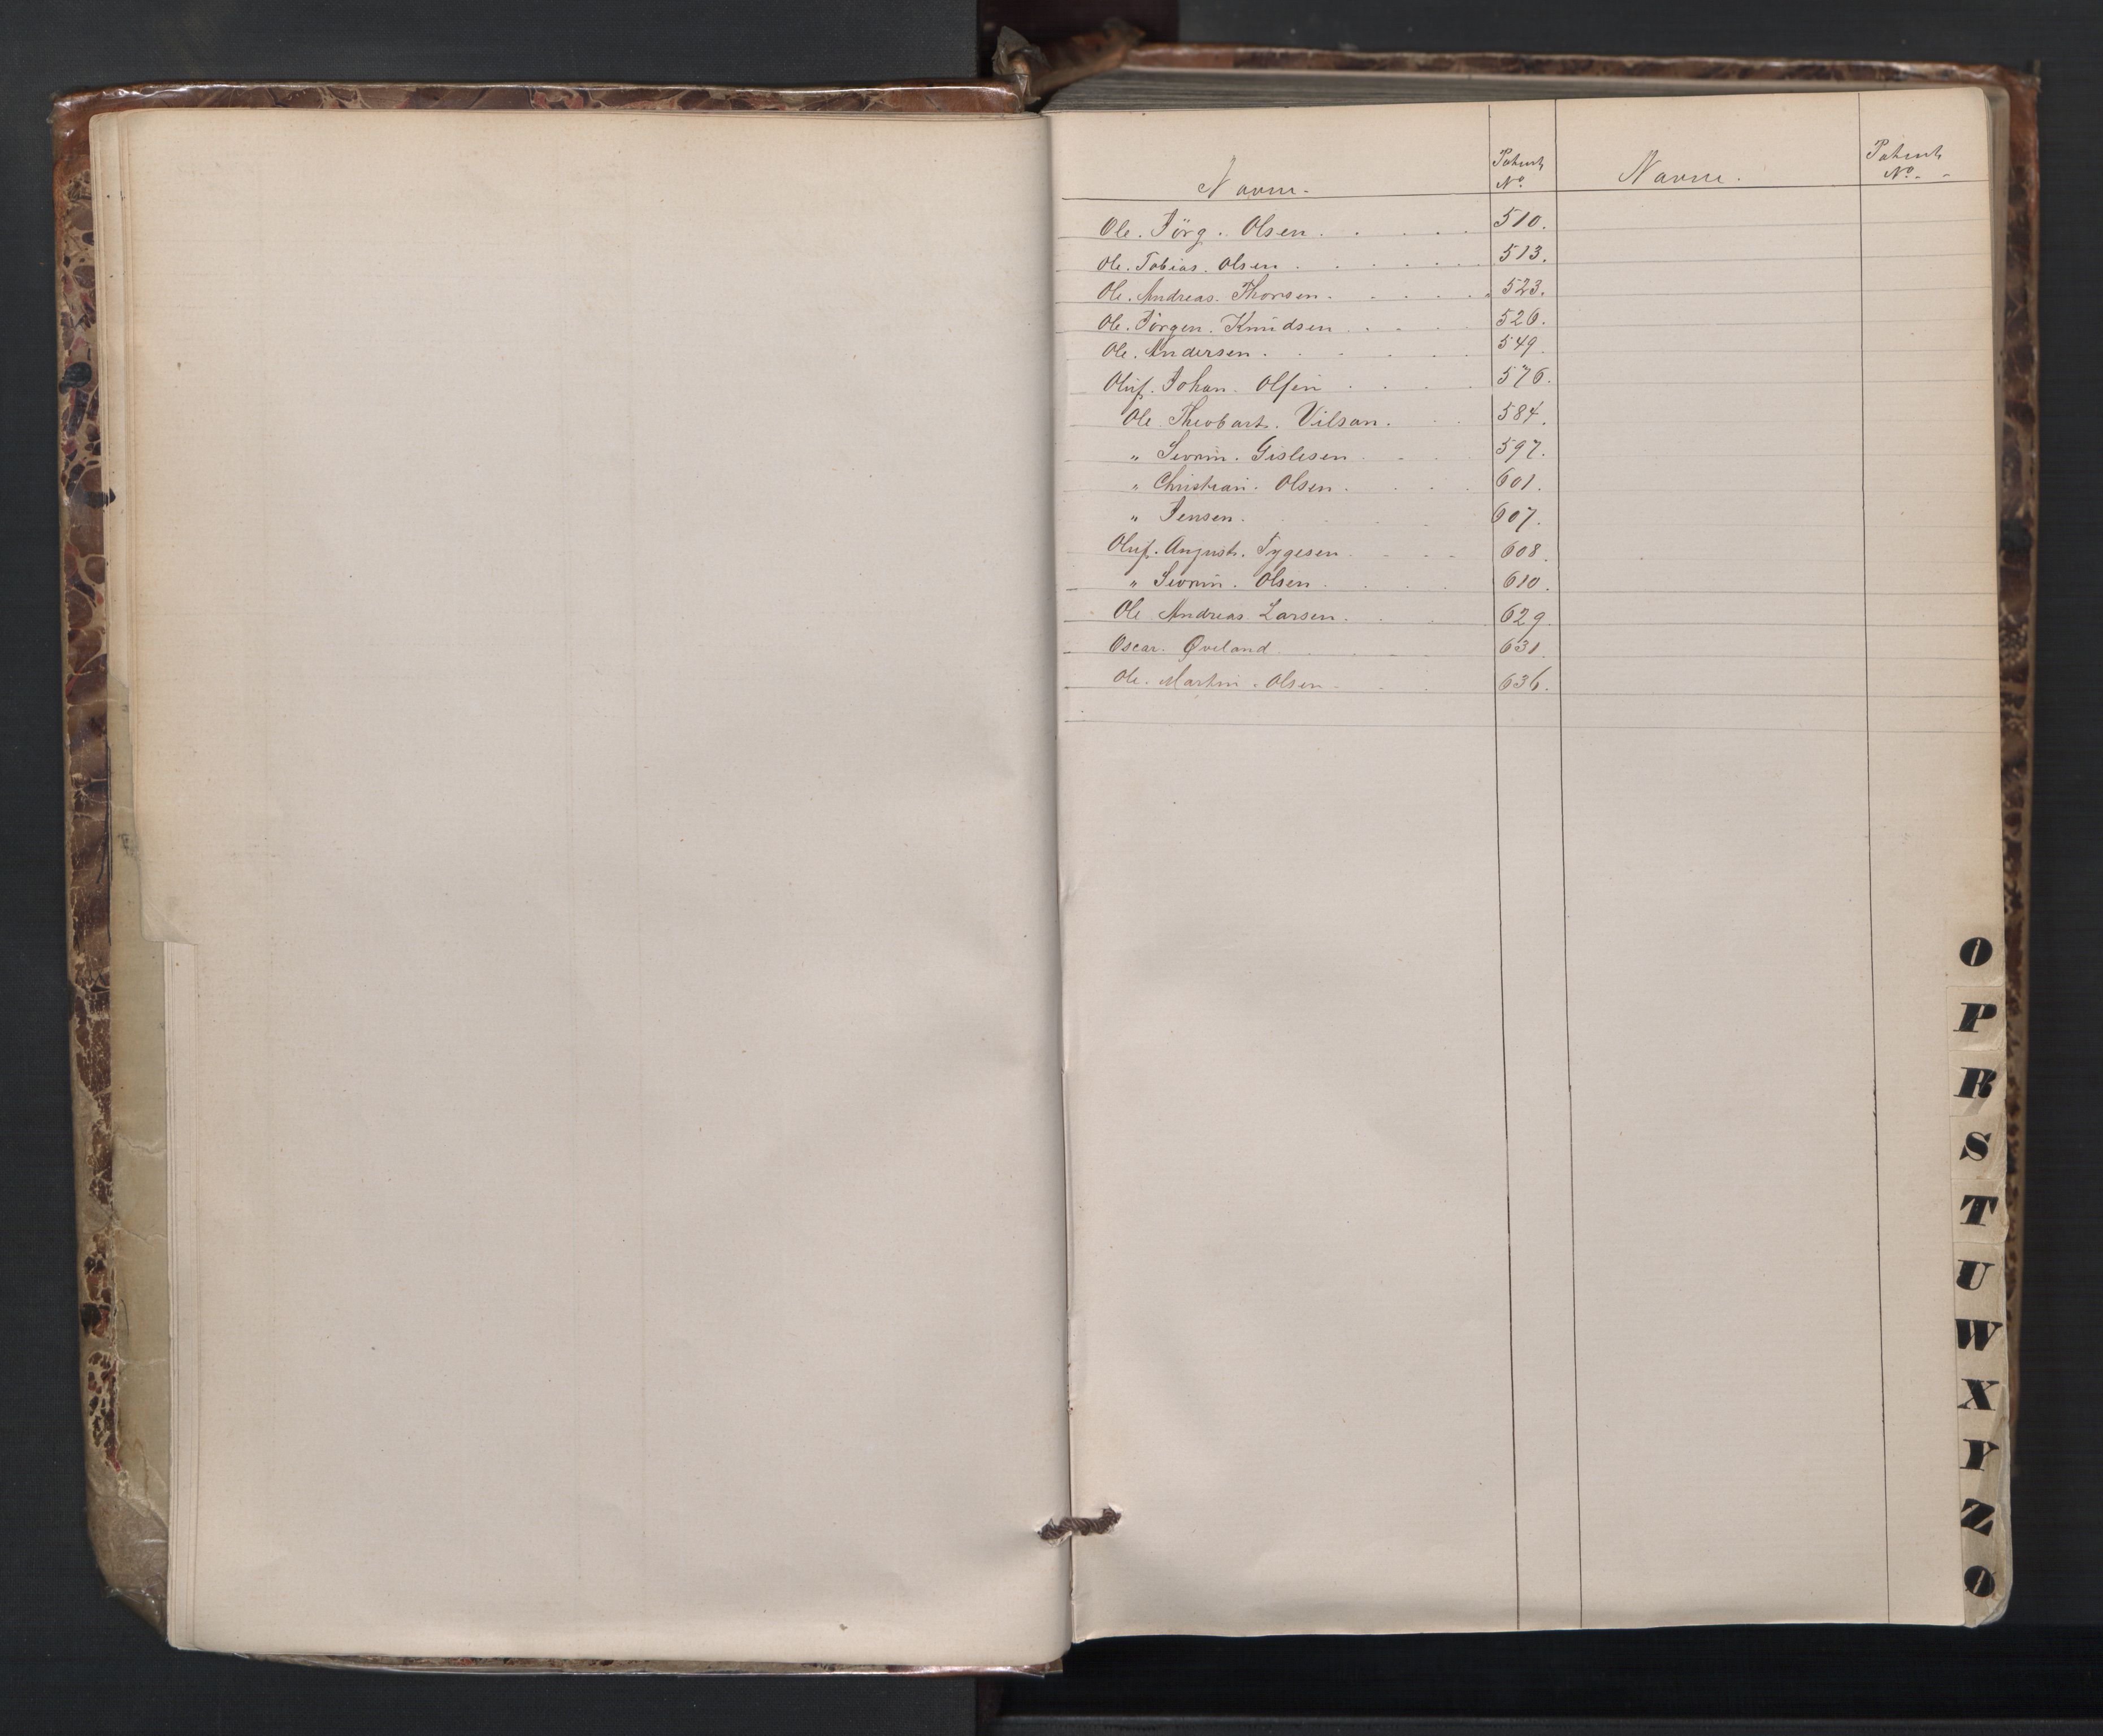 Navne. Patent No. Navne. Patent No.
Ole. Jörg. Olsen. 510.
Ole. Tobias. Olsen. 513.
Ole. Andreas. Thorsen. 523.
Ole. Jörgen. Knudsen. 526.
Ole. Andersen. 549.
Oluf. Johan. Olsen 576.
Ole. Theobart. Vilsan. 584.
" Sevrin. Gislesen. 597.
" Christian. Olsen. 601.
" Jensen. 607.
Oluf. August. Tygesen 608.
" Sevrin. Olsen. 610.
Ole Andreas Larsen. 629.
Oscar. Øveland. 631.
Ole. Martin. Olsen 636.
O
P
R
S
T
U
W
X
Y
Z
Ø